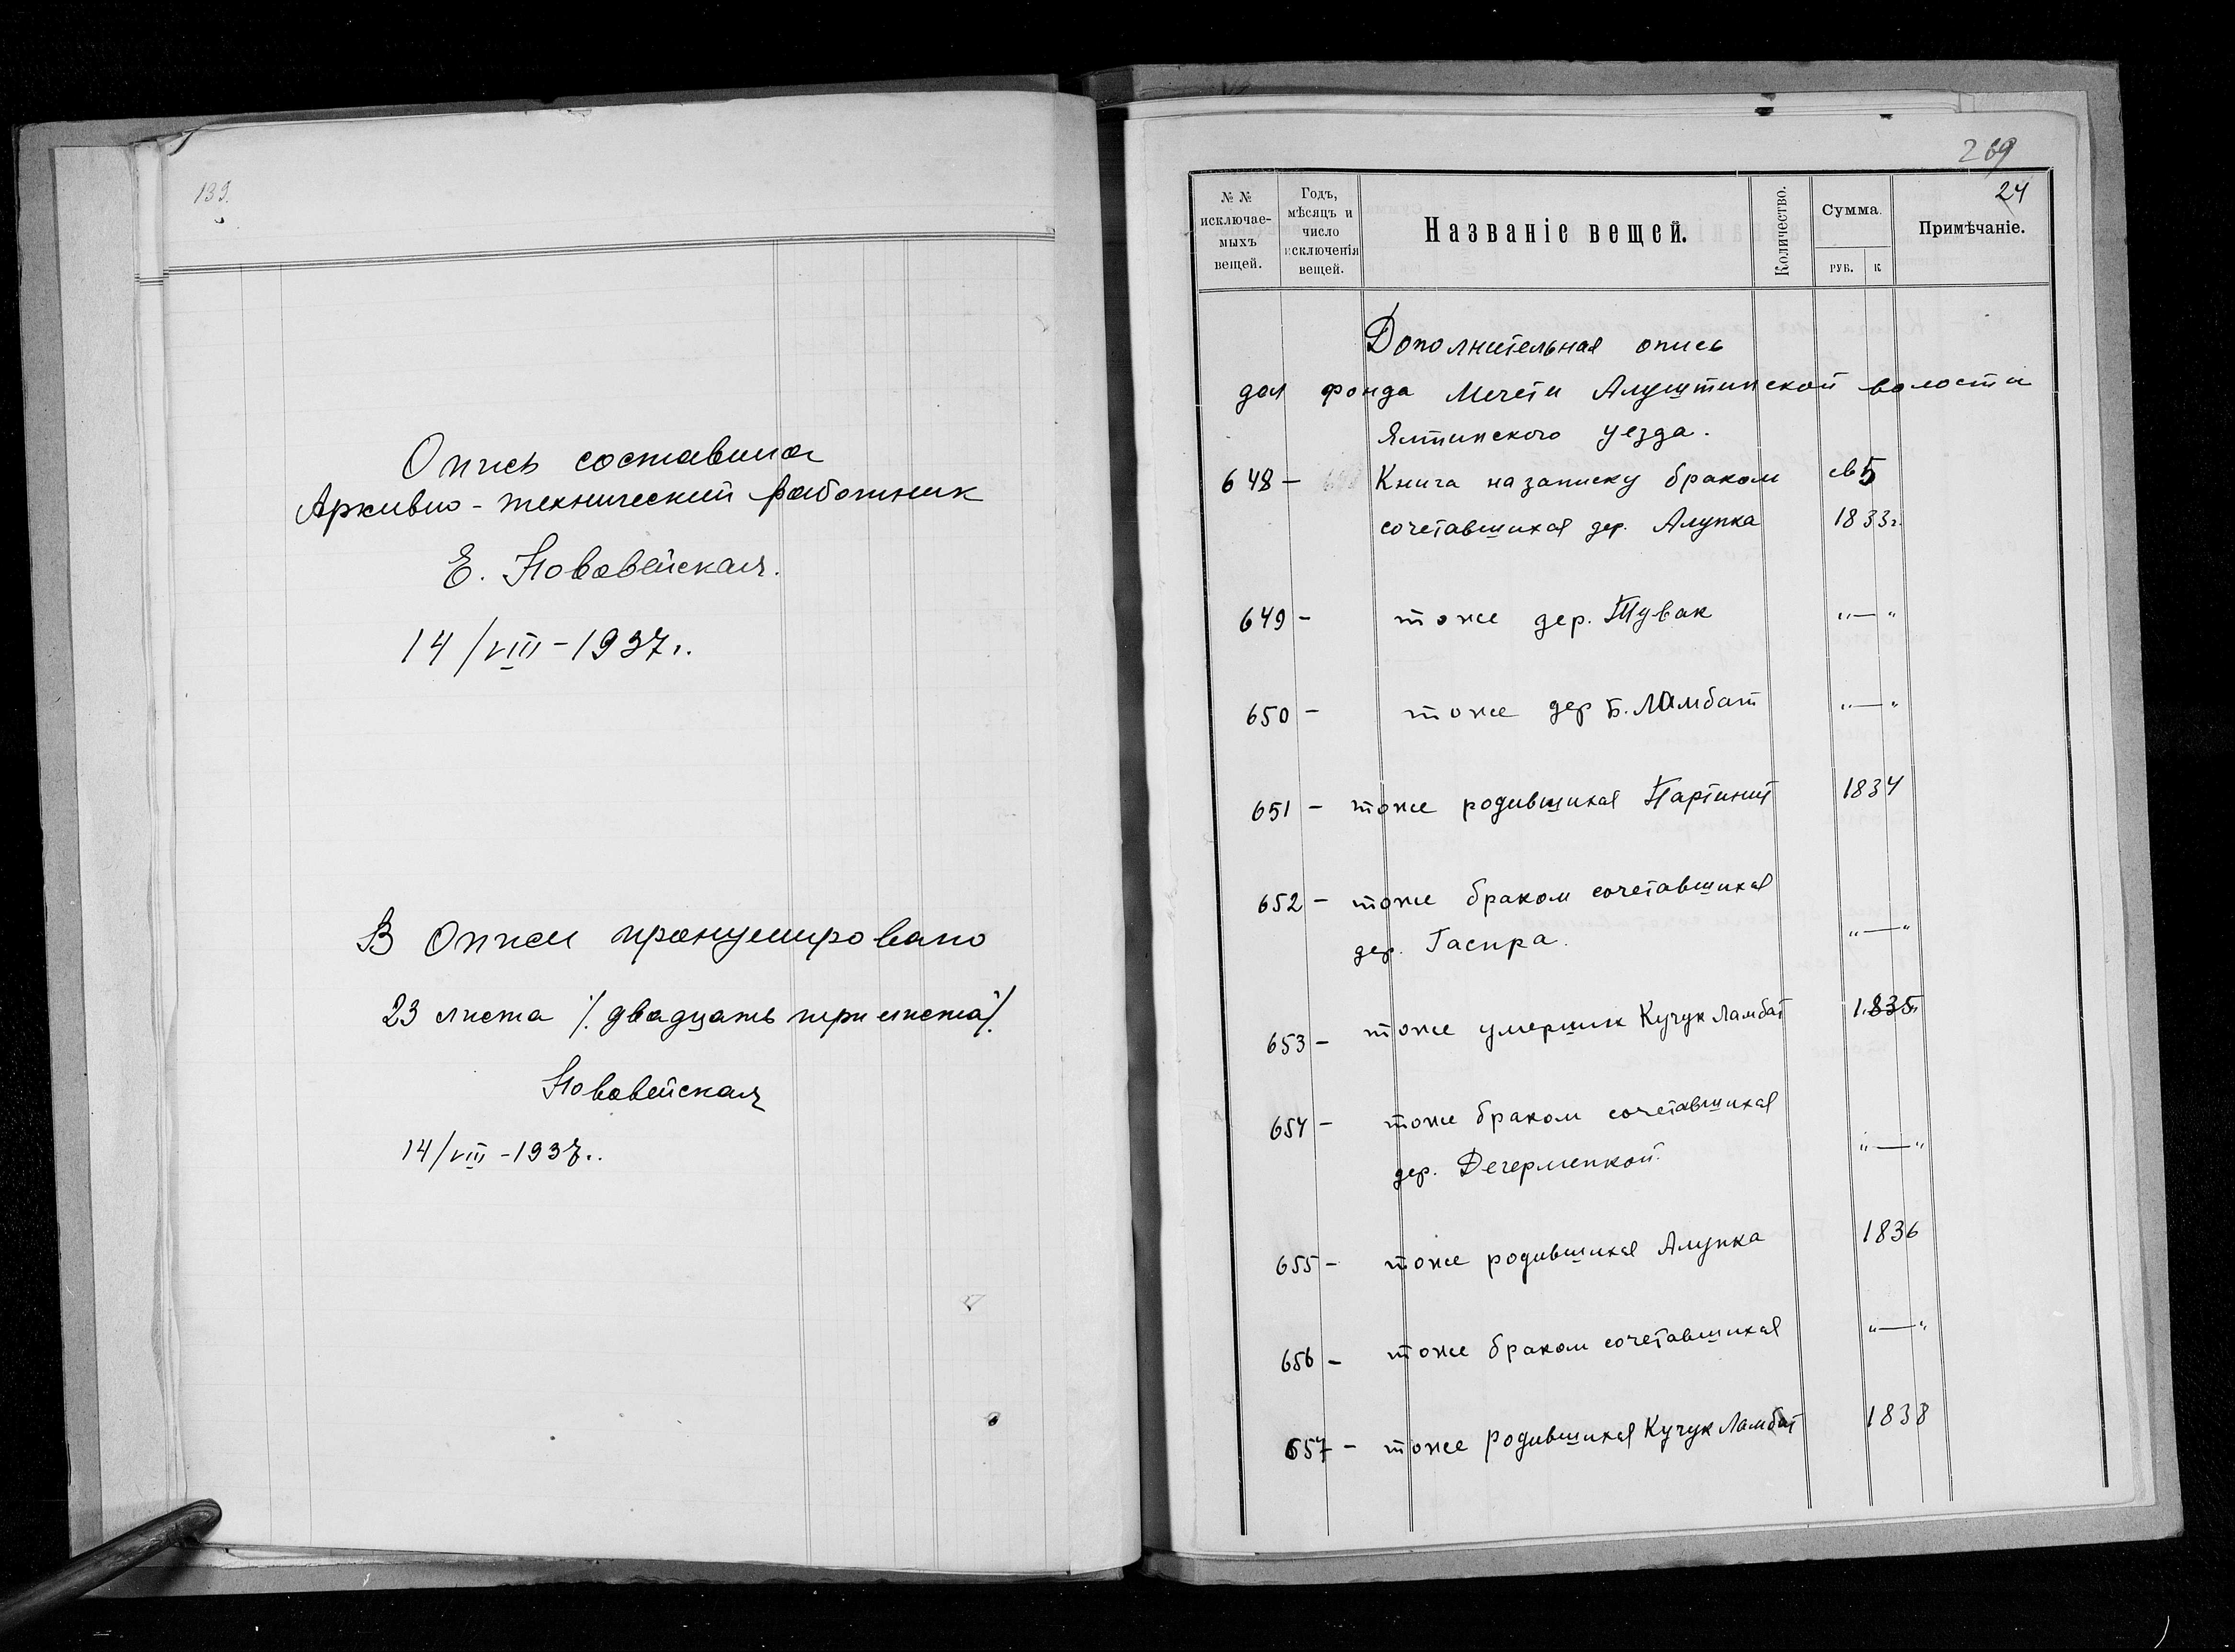 133.
Опись составила
Архивно-технический работник
Е. Нововейская.
14/VIII-1937г.
В описи пронумеровано
23 листа /. двадцать три листа/.
Нововейская
14/VIII-1937г.
269
24
№ № исключае-мыхъ вещей.
Годъ, мѣсяцъ и число исключенія вещей.
Названіе вещей.
Количество.
Сумма.
РУБ. К
Примѣчаніе.
Дополнительная опись
дел фонда Мечети Алуштинской волости
Ялтинского уезда.
648 - Книга на записку браком св 5
сочетавшихся дер. Алупка 1833г.
649 - тоже дер. Тувак "—"
650 - тоже дер Б. Ламбат "—"
651 - тоже родившихся Партинит 1834
652 - тоже браком сочетавшихся
дер. Гаспра. "—"
653 - тоже умерших Кучук Ламбат 1835
654 - тоже браком сочетавшихся
дер. Дегерменкой. "—"
655 - тоже родившихся Алупка 1836
656 - тоже браком сочетавшихся "—"
657 - тоже родившихся Кучук Ламбат 1838